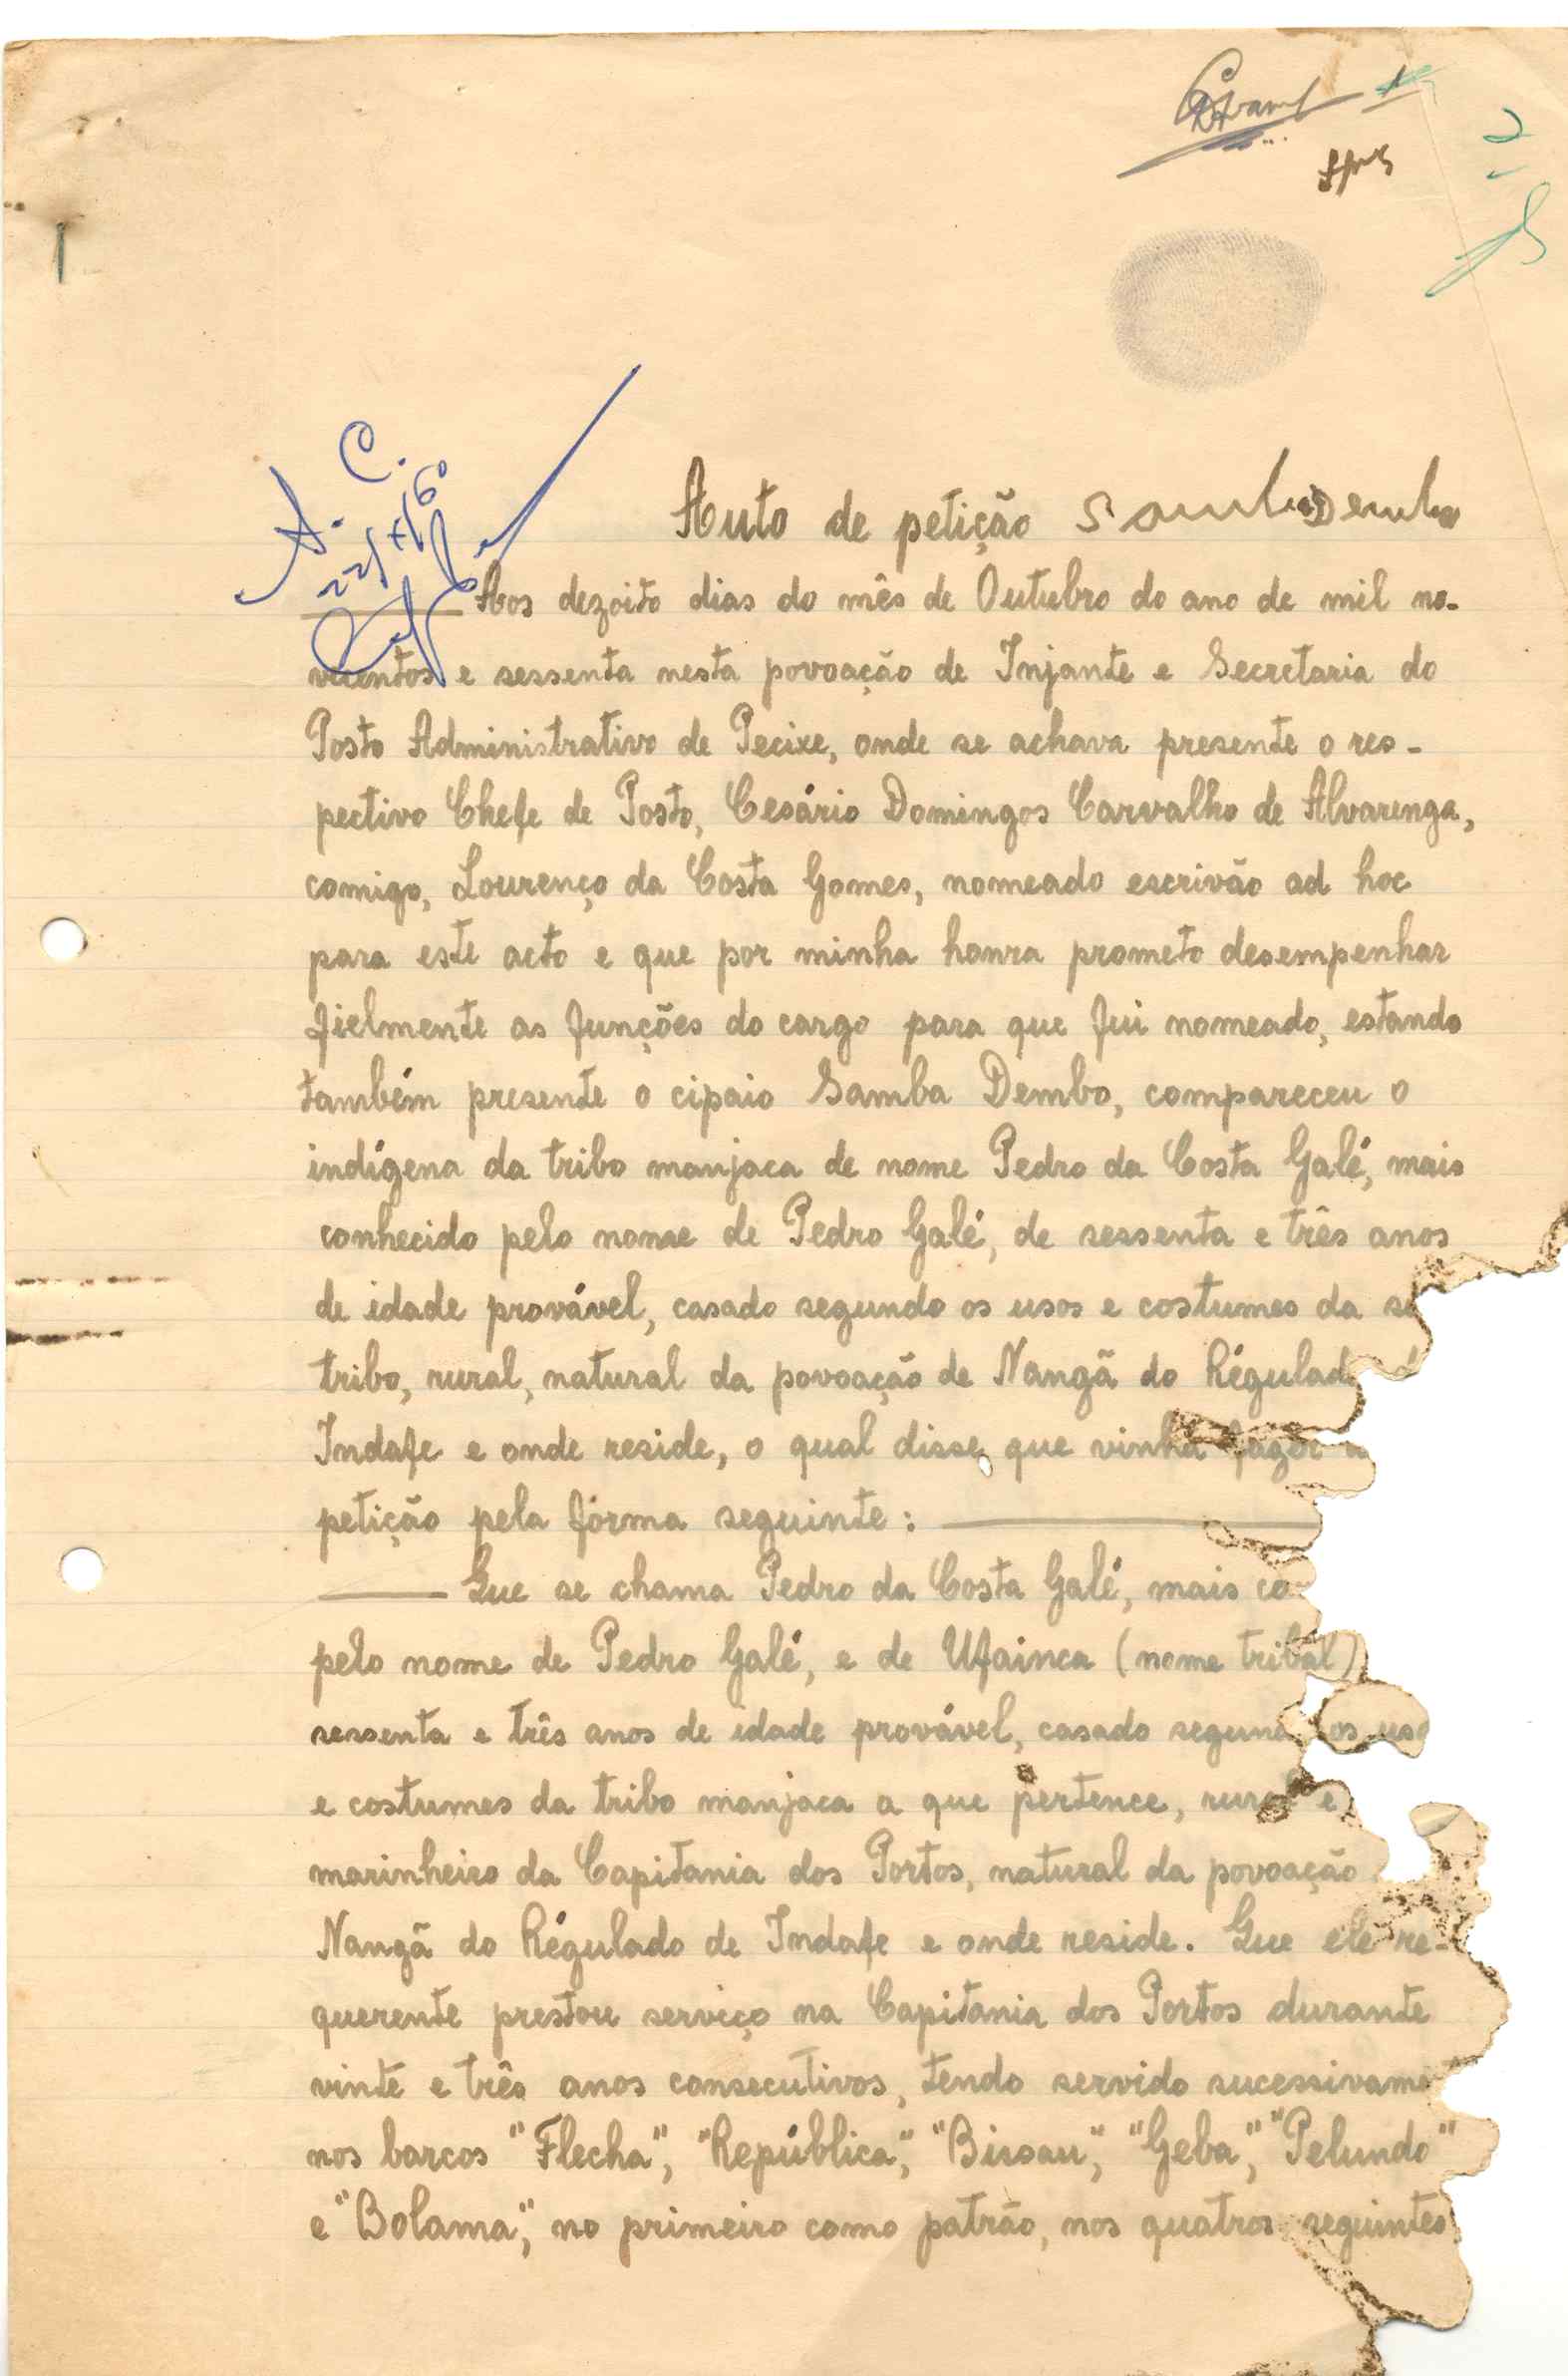 A. C.
22/X/60
Auto de petição Samba Demba
Aos dezoito dias do mês de Outubro do ano de mil no-
vecentos e sessenta nesta povoação de Injante e Secretaria do
Posto Administrativo de Pecixe, onde se achava presente o res-
pectivo Chefe de Posto, Cesário Domingos Carvalho de Alvarenga,
comigo, Lourenço da Costa Gomes, nomeado escrivão ad hoc
para este acto e que por minha honra prometo desempenhar
fielmente as funções do cargo para que fui nomeado, estando
também presente o cipaio Samba Dembo, compareceu o
indígena da tribo manjaca de nome Pedro da Costa Galé, mais
conhecido pelo nome de Pedro Galé, de sessenta e três anos
de idade provável, casado segundo os usos e costumes da
tribo, rural, natural da povoação de Nangã do Régulad
Indafe e onde reside, o qual disse que vinha fazer
petição pela forma seguinte:
Que se chama Pedro da Costa Galé, mais co
pelo nome de Pedro Galé, e de Ufainca (nome tribal)
sessenta e três anos de idade provável, casado segund os uso
e costumes da tribo manjaca a que pertence, rural e
marinheiro da Capitania dos Portos, natural da povoação
Nangã do Régulado de Indafe e onde reside. Que ele re-
querente prestou serviço na Capitania dos Portos durante
vinte e três anos consecutivos, tendo servido sucessivame
nos barcos "Flecha", "República", "Bissau", "Geba", "Pelundo"
e "Bolama", no primeiro como patrão, nos quatros seguintes